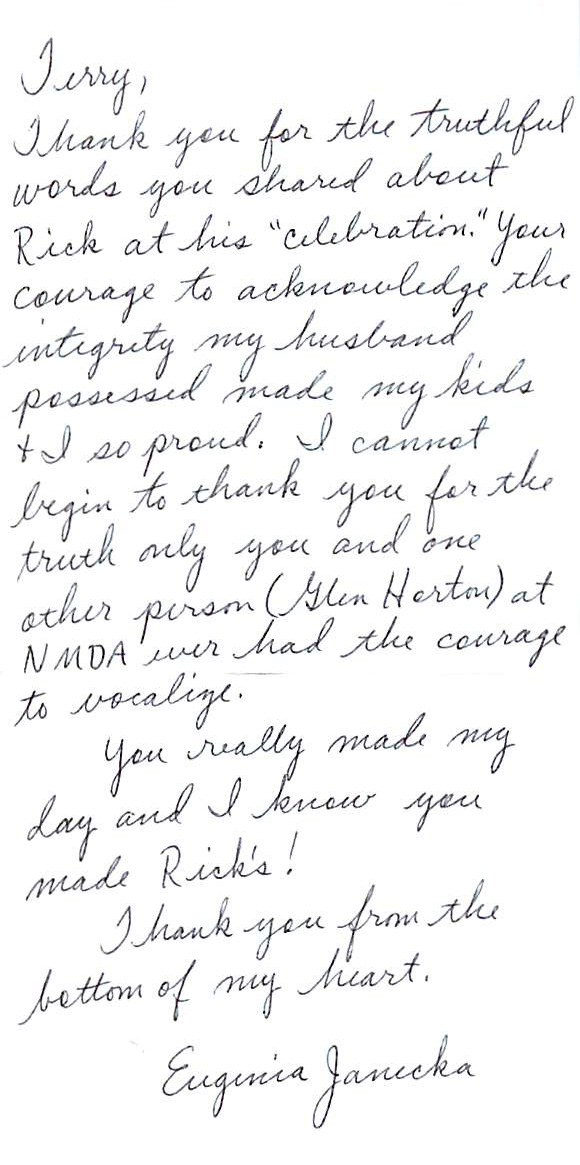 Terry,
Thank you for the truthful
words you shared about
Rick at his "celebration." Your
courage to acknowledge the
integrity my husband
possessed made my kids
+ I so proud. I cannot
begin to thank you for the
truth only you and one
other person (Glen Horton) at
NMDA ever had the courage
to vocalize.
You really made my
day and I know you
made Rick's!
I thank you from the
bottom of my heart.
Eugenia Janecka